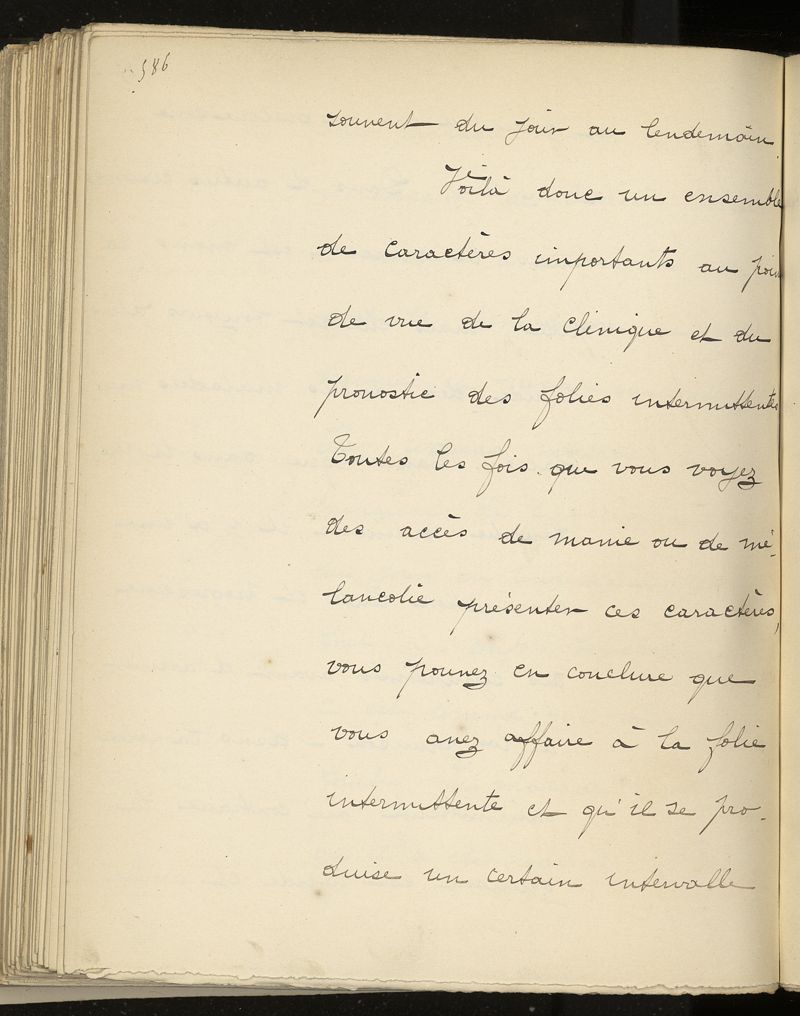 586
souvent du jour au lendemain.
Voilà donc un ensemble
de caractères importants au poin
de vue de la clinique et du
pronostic des folies intermittentes
Toutes les fois que vous voyez
des accès de manie ou de mé-
lancolie présenter ces caractères,
vous pouvez en conclure que
vous avez affaire à la folie
intermittente et qu'il se pro-
duise un certain intervalle